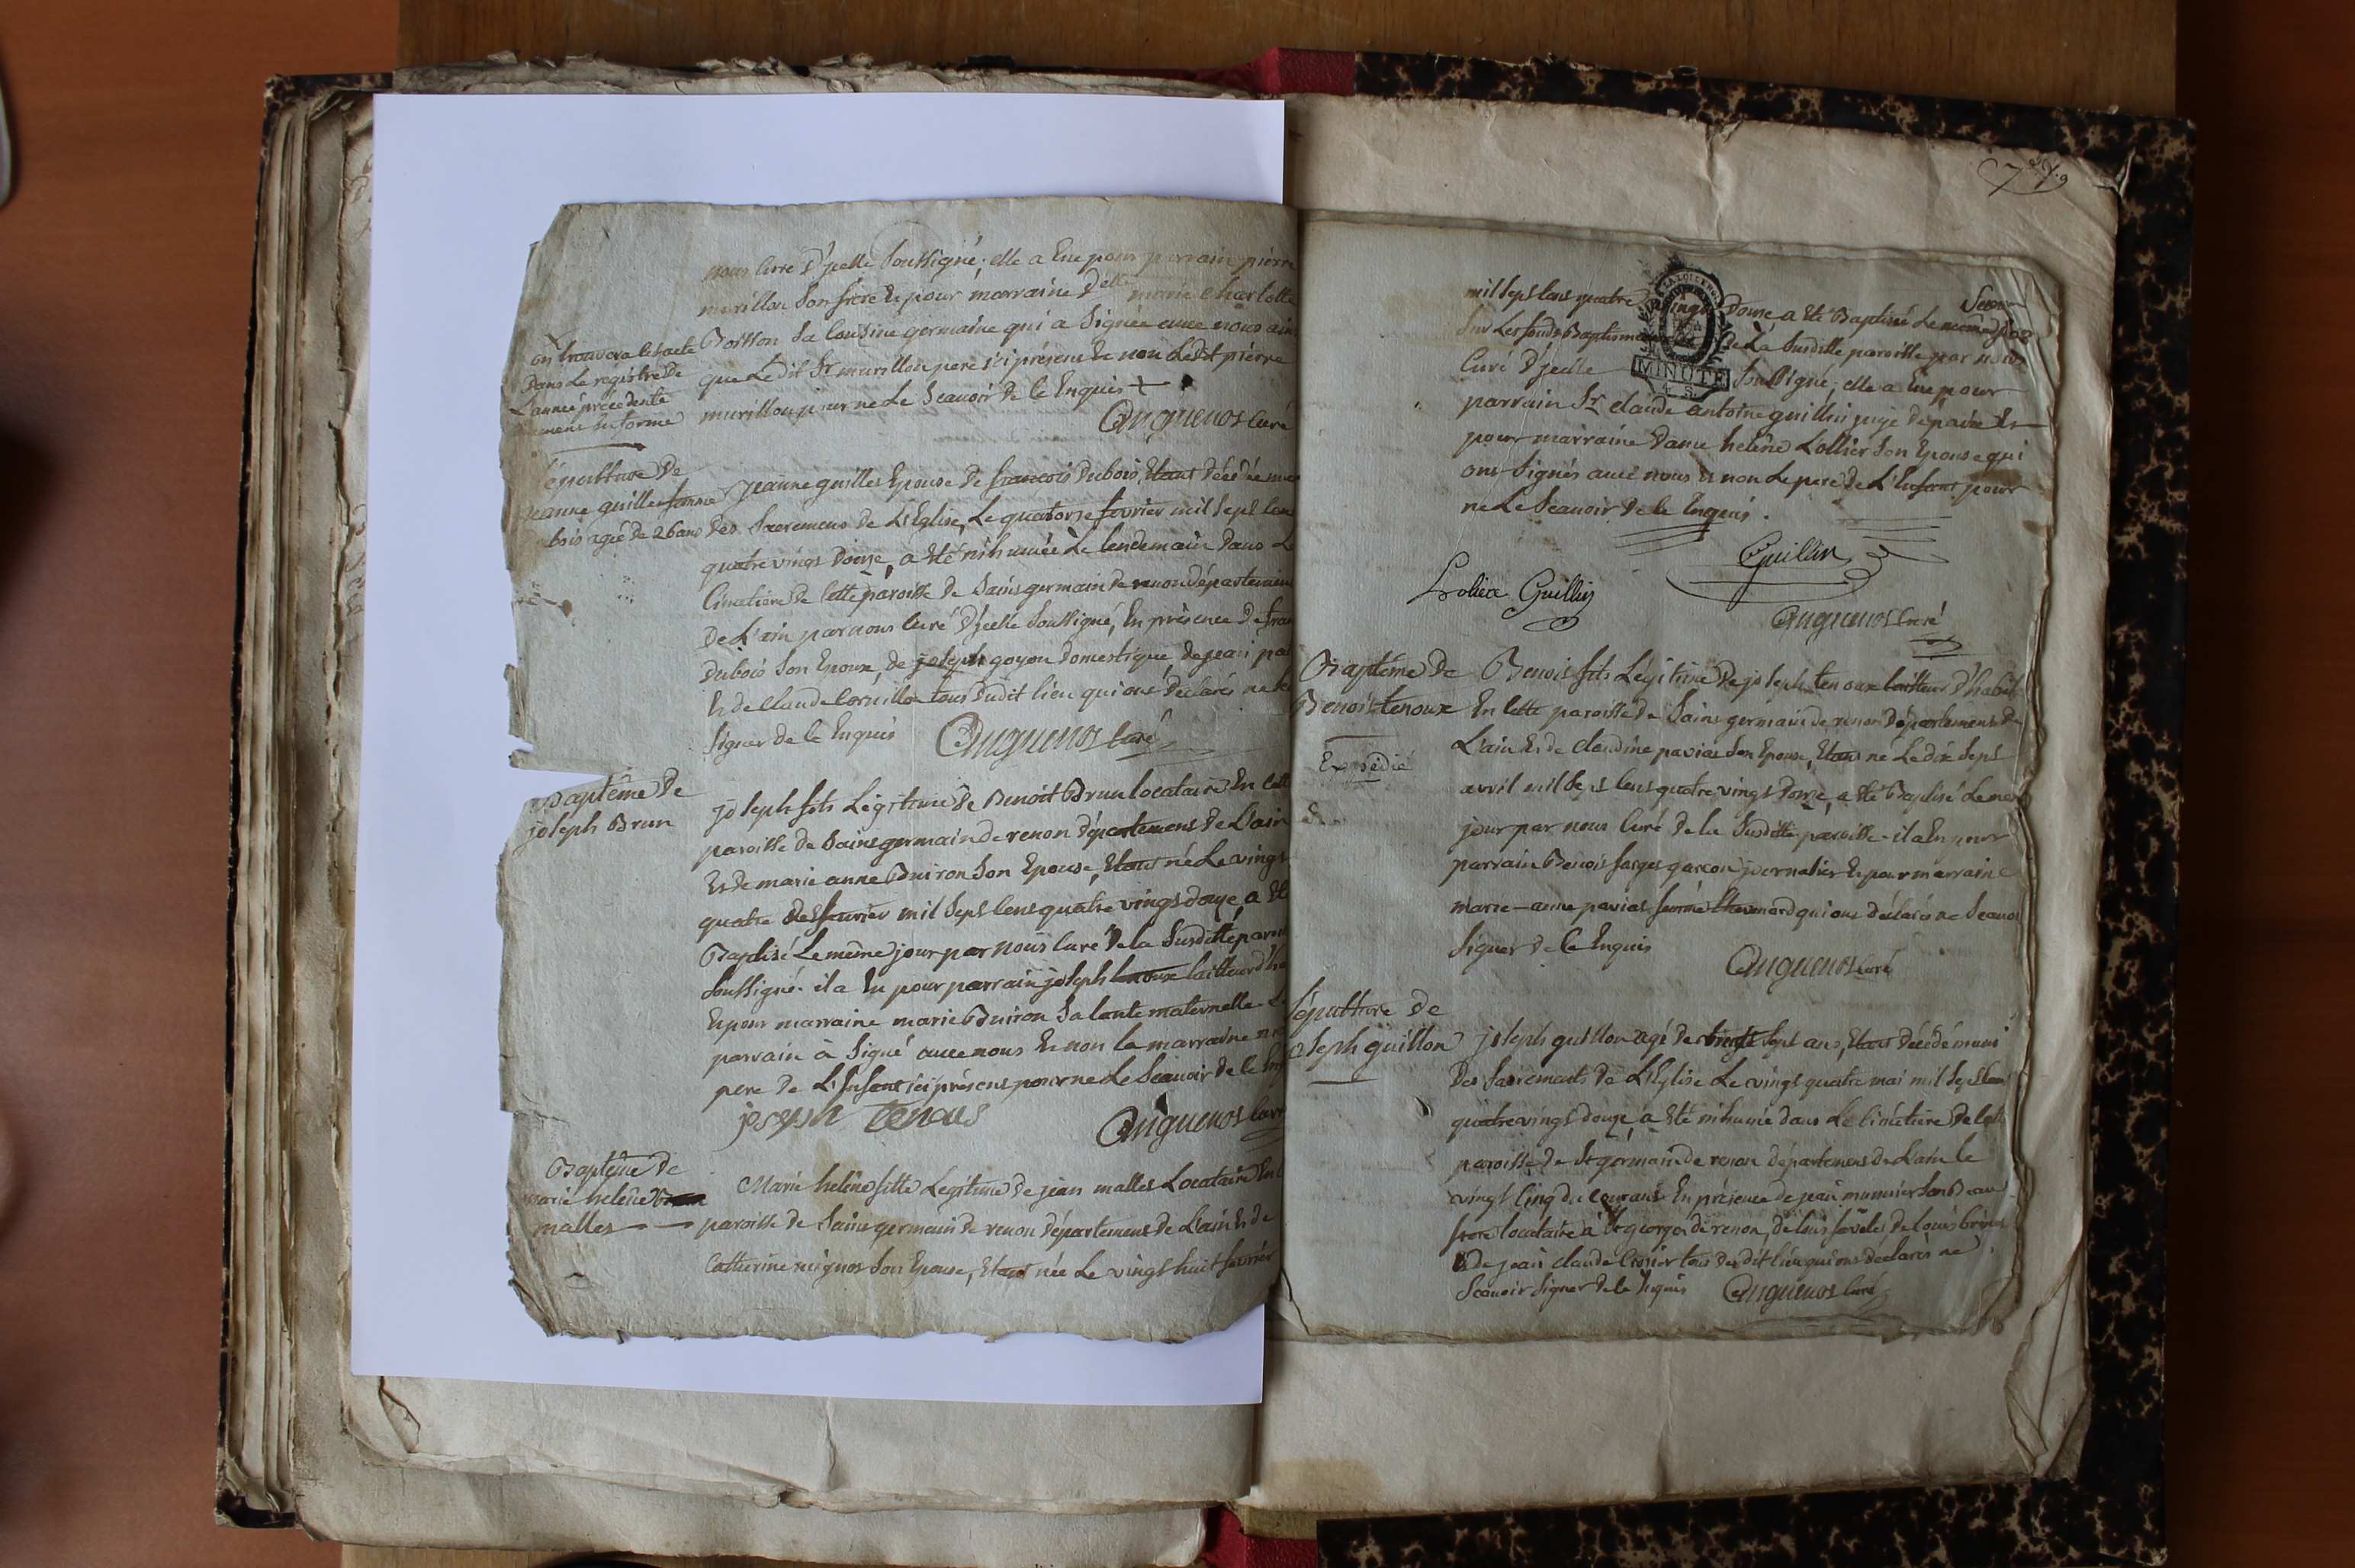 nous curé d'jcelle soussigné; elle a Eue pour parrain pierre
murillon son frere Et pour marraine Delle marie charlotte
Boisson sa cousine germaine qui a Signée avec nous ain
que Ledit Sr murillon pere ici présent Et non Ledit pierre
murillon pour ne Le Scauoir de ce Enquis +
on trouvera cet acte
Dans Le registre De
L'année précédente
en forme
Anguenos curé
sépulture De
jeanne guillet femme
bois agée de 26 ans
jeanne guillet Epouse de francois Dubois, Etant décédé mu
des Sacremens de L'Eglise, Le quatorze fevrier mil Sept Cen
quatre vingt Douze, a Eté inhumée Le lendemain Dans Le
Cimetiere de Cette paroisse de Saint germain de renon département
De L'ain par nous Curé D'jcelle Soussigné, En présence De fran
Dubois Son Epoux, de joseph goyon Domestique, de jean pa
Et de Claude Cornillon tous Dudit lieu qui ont Déclarés ne
Signer de Ce Enquis Anguenos Curé
Baptême de
joseph Brun
joseph fils Légitime de Benoit Brun locataire En Cette
paroisse de Saint germain de renon département de L'ain
Et De marie anne Buiron Son Epouse, Etant né Le vingt
quatre De fevrier mil Sept Cent quatre vingt douze, a Eté
Baptisé Le même jour par nous Curé De la Susditte paroi
Soussigné. il a Eu pour parrain joseph tenoux tailleur d'ha
Et pour marraine marie Buiron Sa tante maternelle. Le
parrain à Signé avec nous Et non la marraine ni
pere de L'Enfant ici présent pour ne Le Scauoir de Ce
joseph Tenous Anguenos Curé
Baptême de
marie helene
malles
Marie helêne fille Legitime De jean malles Locataire En C
paroisse de Saint germain de renon département De L'ain Et de
Catherine mignot Son Epouse, Etant née Le vingt huit fevrier
mil Sept Cent quatre vingt Douze a Eté Baptisée Le même jour
Sur Les fonds Baptismaux De La Susditte paroisse par nous
Curé D'jcelle Soussigné; elle a Eue pour
MINUTE
parrain Sr claude antoine guillin juge de paix Et
pour marraine Dame helêne Lollier Son Epouse qui
ont Signés avec nous Et non Le pere De L'Enfant pour
ne Le Scauoir De Ce Enquis.
Guillin
Lolier Guillin
Anguenos Curé
Baptême De
Benoit tenoux
Expédié
Benoit fils Légitime De joseph tenoux tailleur D'habit
En Cette paroisse de Saint germain de renon Département De
L'ain Et de claudine paviat Son Epouse, Etant né Le dix Sept
avril mil Sept Cent quatre vingt Douze, a Eté Baptisé Le mem
jour par nous Curé De la Susditte paroisse. il a Eu pour
parrain Benoit farget garcon journalier Et pour marraine
marie-anne paviat femme qui ont déclarés ne Scauoir
Signer De Ce Enquis
Anguenos Curé
Sépulture De
joseph guillon
joseph guillon agé de vingt Sept ans, Etant décédé muni
Des Sacrements De L'Eglise Le vingt quatre mai mil Sept Cent
quatre vingt douze, a Eté inhumé dans Le Cimétiere De Cette
paroisse de St germain de renon département de L'ain Le
vingt Cinq du Courant En présence de jean munier Son Beau
frere locataire à St georges de renon, de de Louis
Et De jean claude tous du dit lieu qui ont déclarés ne
Scauoir Signer De Ce Enquis Anguenos Curé